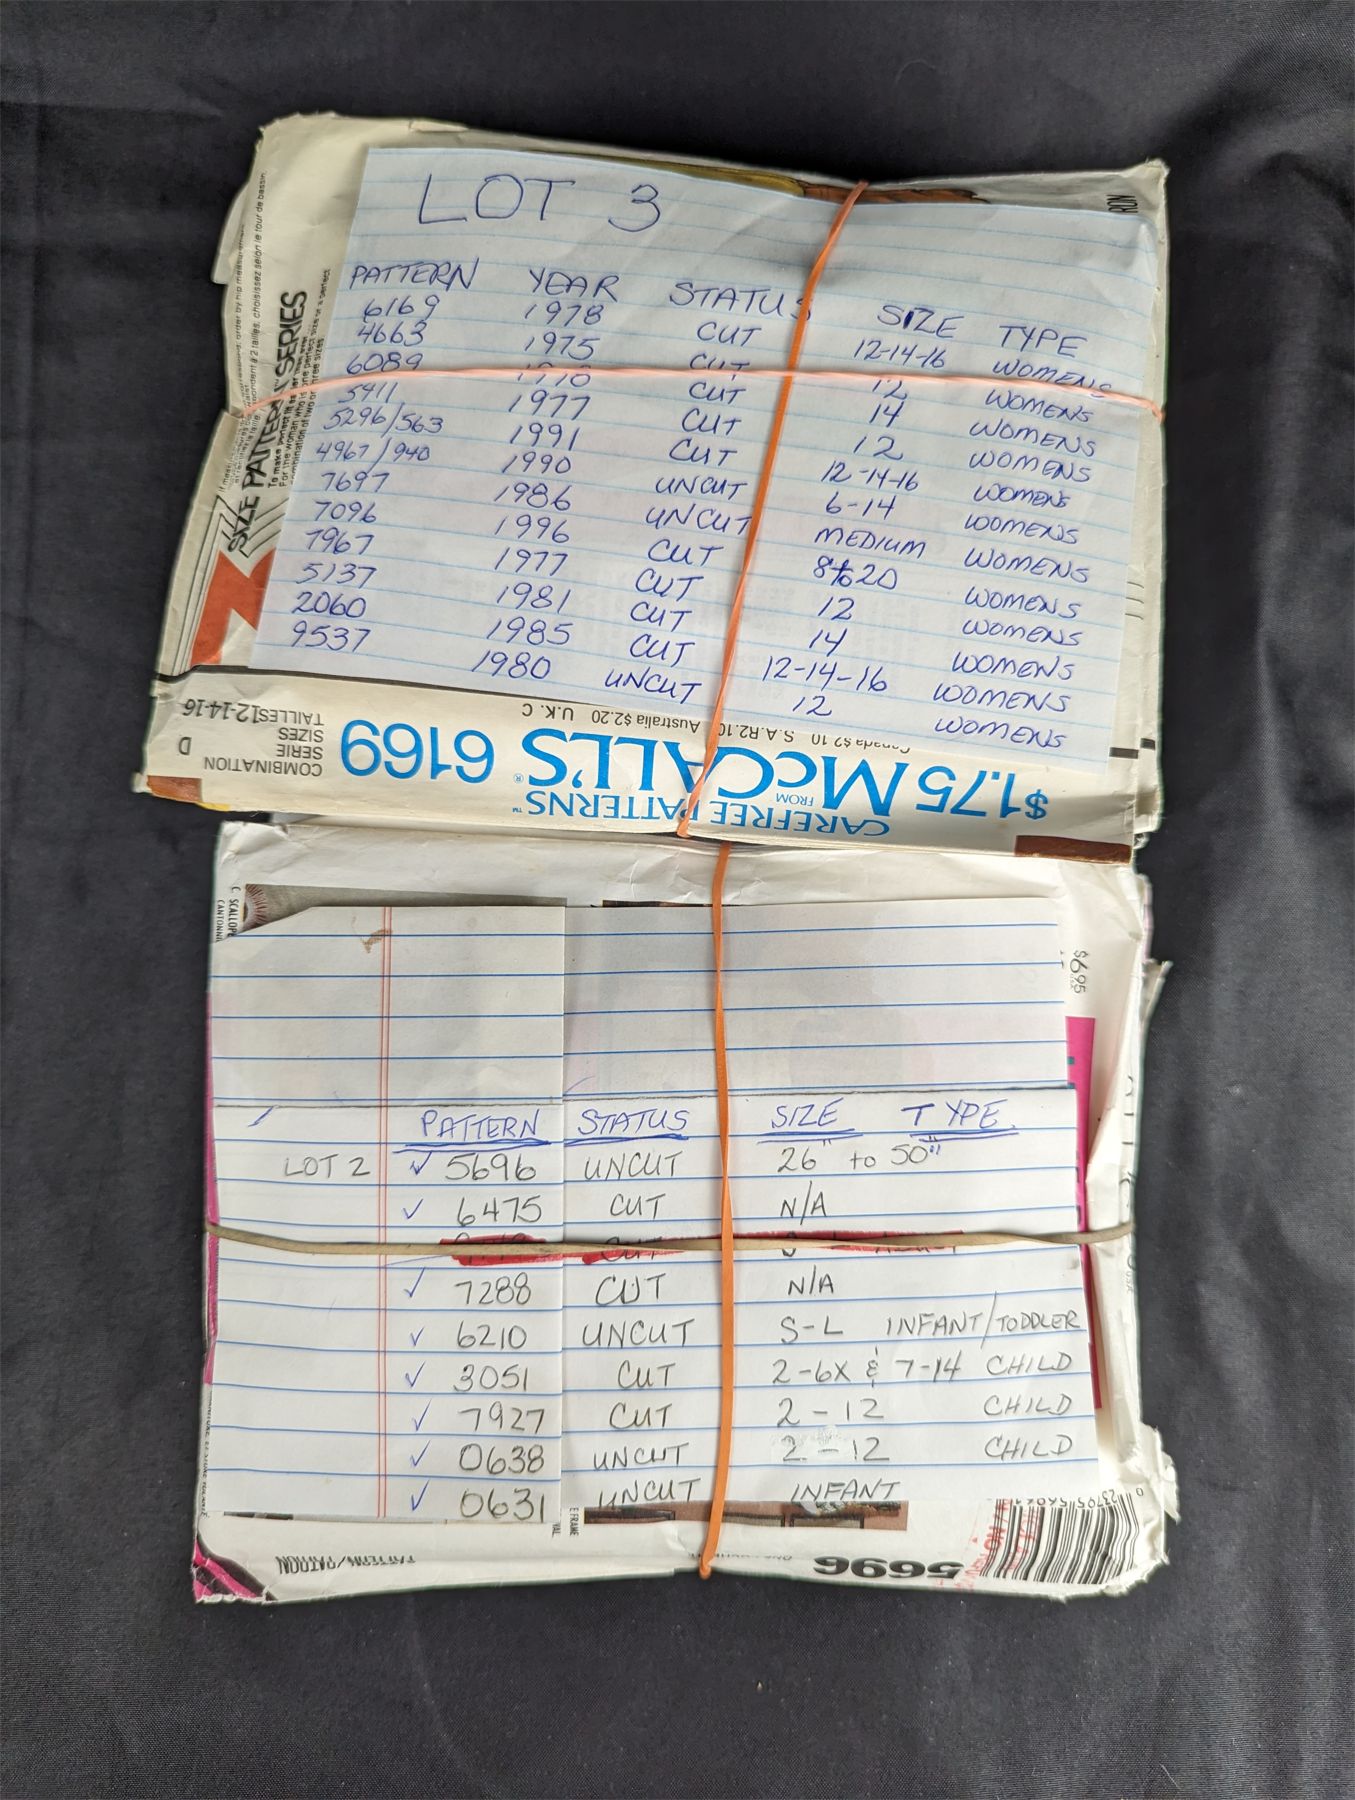 LOT 3
PATTERN YEAR STATUS SIZE TYPE
6169 1978 CUT 12-14-16 WOMENS
4663 1975 CUT 12 WOMENS
6089 CUT 14 WOMENS
5411 1977 CUT 12 WOMENS
5296/563 1991 CUT 12-14-16 WOMENS
4967/940 1990 UNCUT 6-14 WOMENS
7697 1986 UNCUT MEDIUM WOMENS
7096 1996 CUT 8 to 20 WOMENS
7967 1977 CUT 12 WOMENS
5137 1981 CUT 14 WOMENS
2060 1985 CUT 12-14-16 WOMENS
9537 1980 UNCUT 12 WOMENS
SIZE PATTERN SERIES
RON
COMBINATION
SERIE
SIZES
TAILLES 12-14-16
D
Canada $2.10 S.A.R2.10 Australia $2.20 U.K.
$1.75 FROM McCALL'S® 6169
CAREFREE PATTERNS™
$6.95
PATTERN STATUS SIZE TYPE
LOT 2 ✓ 5696 UNCUT 26" to 50"
✓ 6475 CUT N/A
CUT
✓ 7288 CUT N/A
✓ 6210 UNCUT S-L INFANT/TODDLER
✓ 3051 CUT 2-6X & 7-14 CHILD
✓ 7927 CUT 2-12 CHILD
✓ 0638 UNCUT 2-12 CHILD
✓ 0631 UNCUT INFANT
PATTERN/PATRON
5696